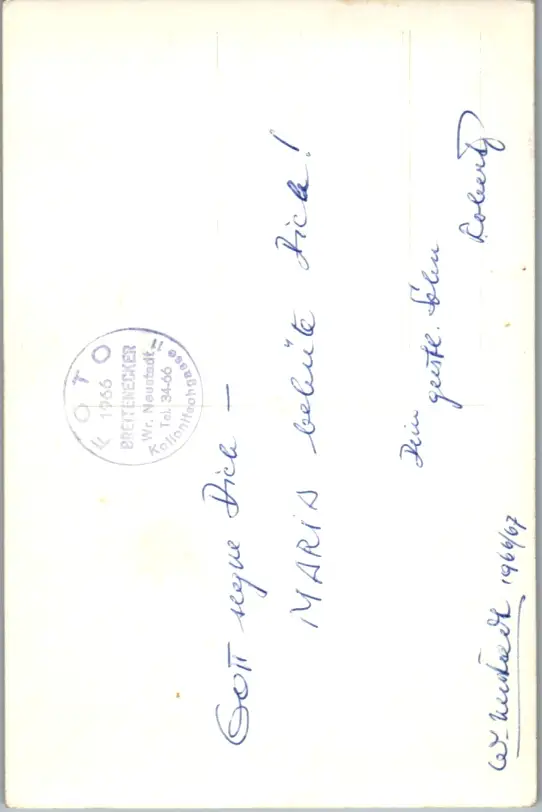 FOTO
1966
BREITENECKER
Wr. Neustadt
Tel. 34-66
GOTT segne Dich –
MARIA behüte Dich!
Dein
geistl. Sohn
Robert
W. Neustadt 1966/67